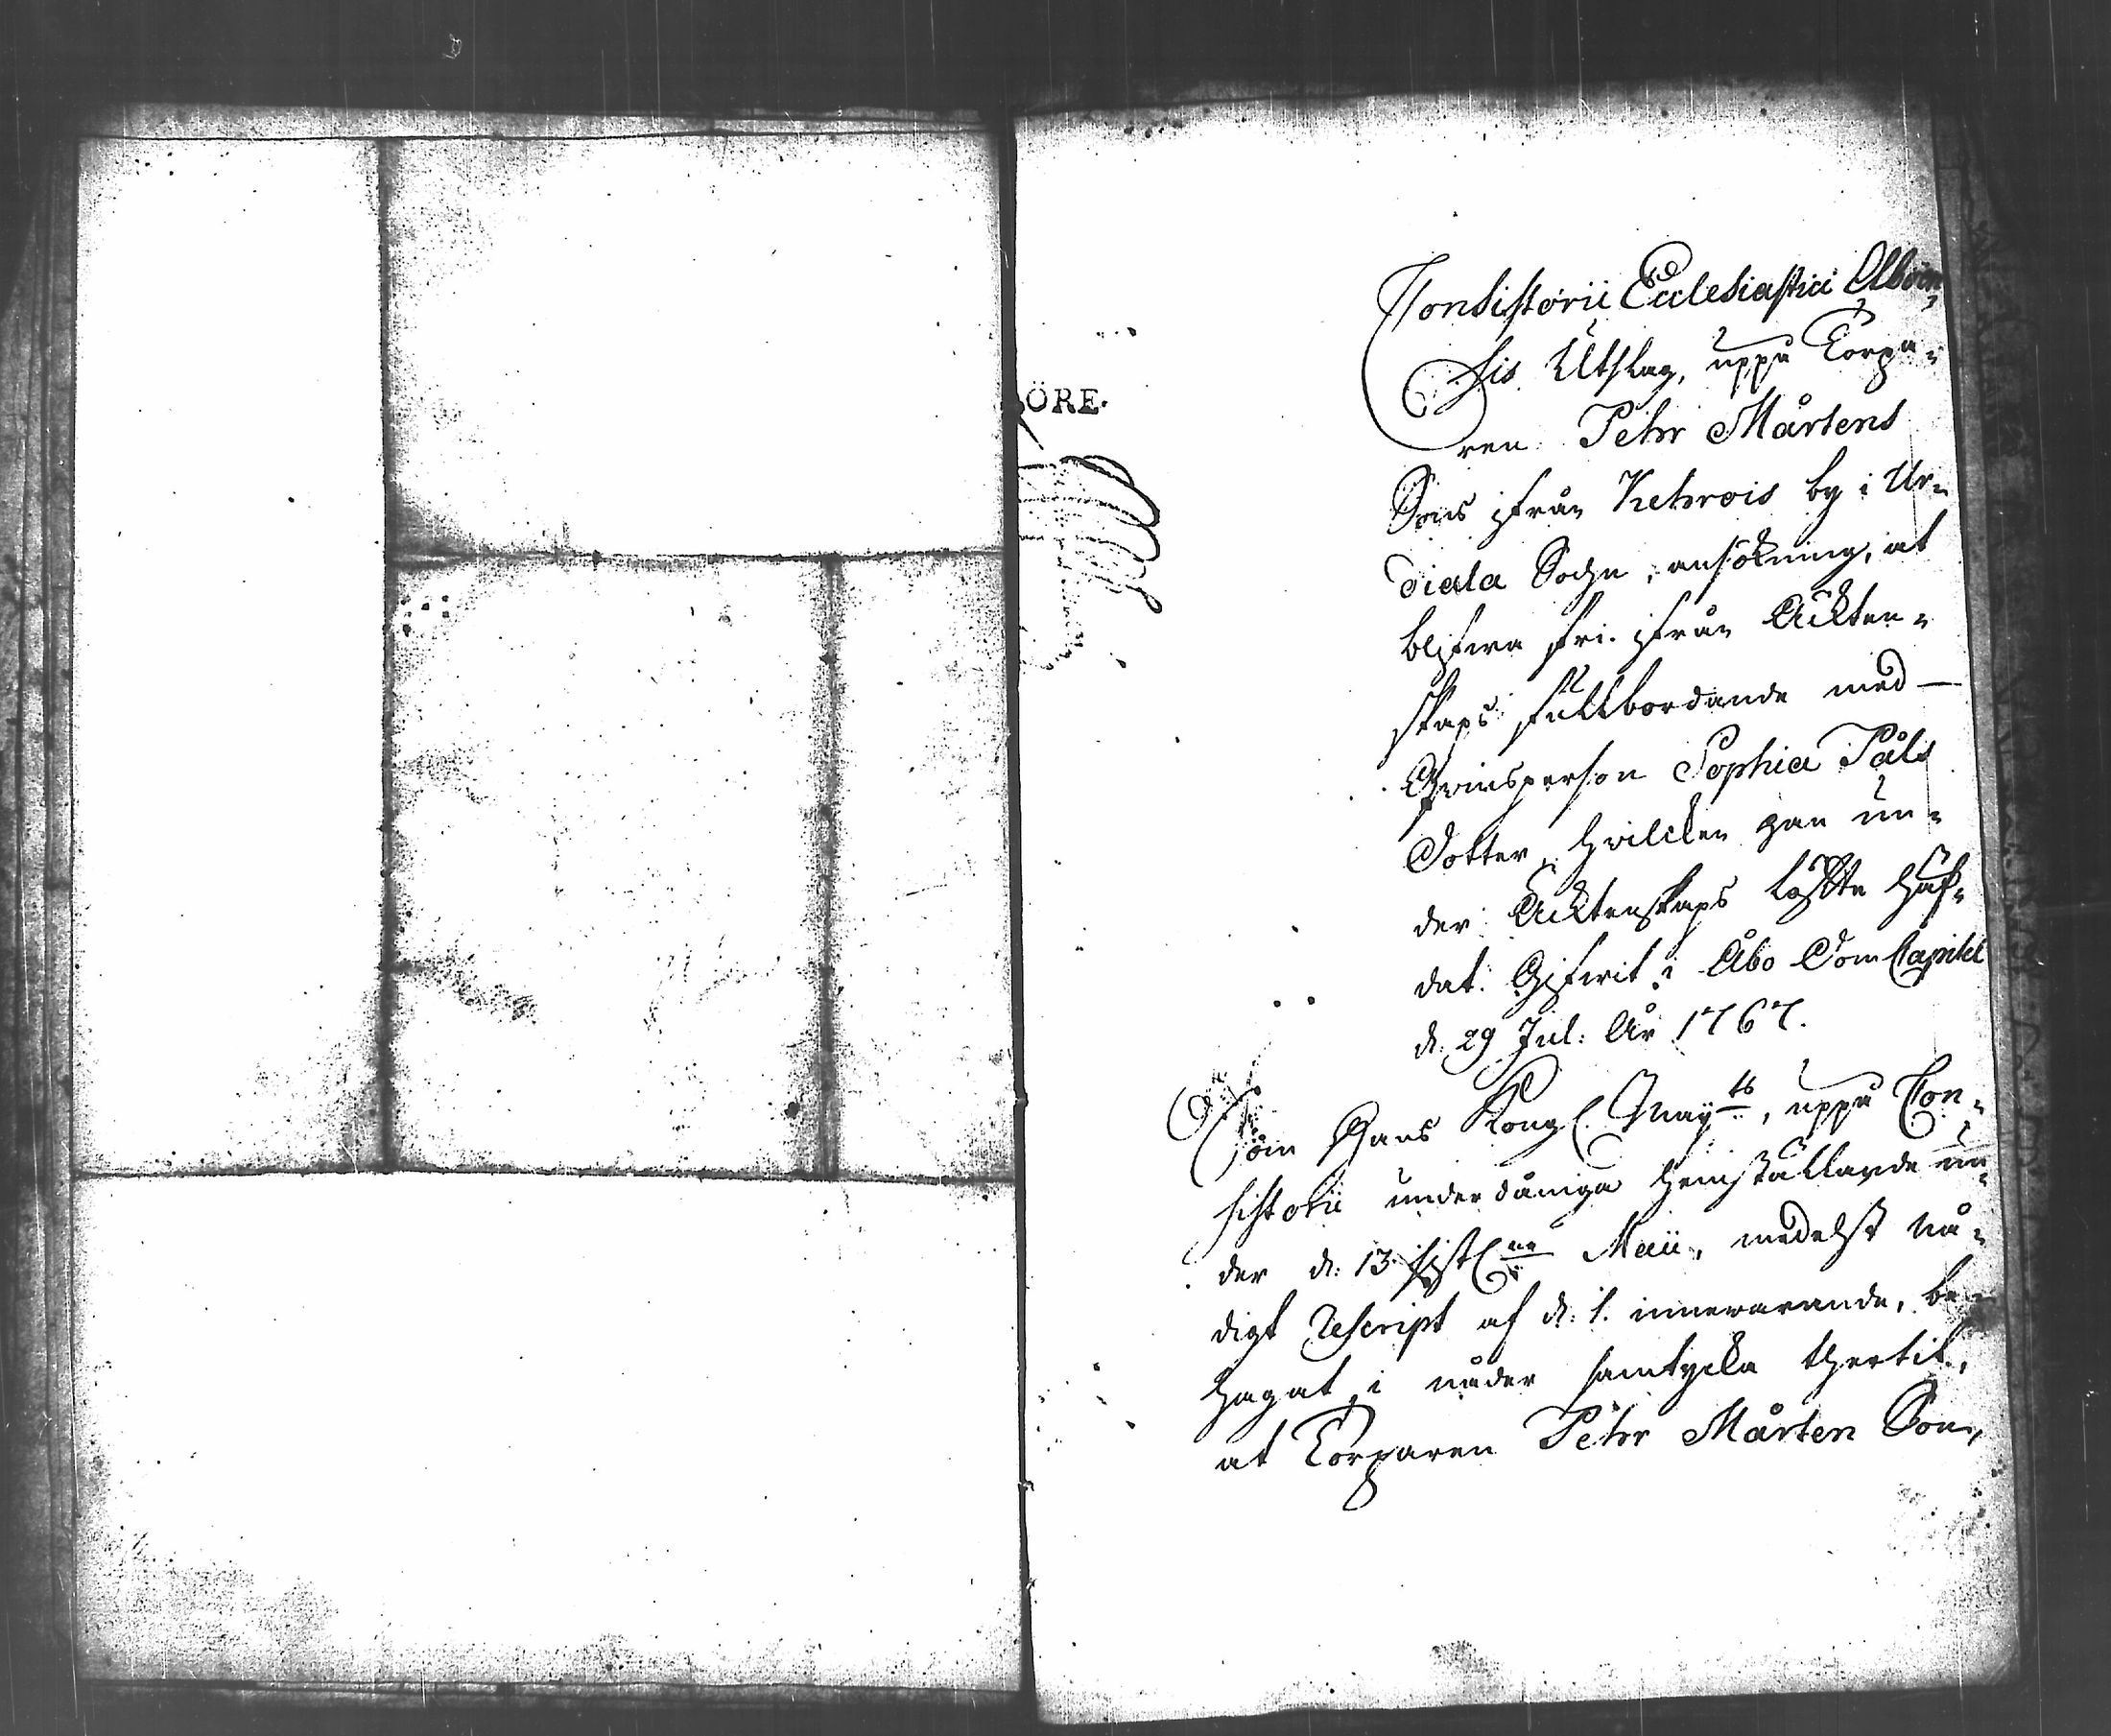 ÖRE.
Consistorii Ecclesiastici Aboën,
sis Utslag, uppå Torpa-
ren Pehr Mårtens
Sons ifrån Kehrois by i Ur-
diala Sochn, ansökning, at
blifwa fri ifrån Äckten-
skaps fullbordande med
Qvinsperson Sophia Påls
Dotter, hvilcken han un-
der Äcktenskaps löffte häf-
dat. Gifwit i Åbo Dom Capitel
d: 29 Jul: År 1767.
Som Hans Kongl. May:ts, uppå Con-
sistorii underdåniga hemställande un-
der d: 13 sistl:ne Maii, medelst nå-
digt Rescript af d: 1. innewarande, be-
hagat i nåder samtycka thertil,
at Torparen Pehr Mårten Son,